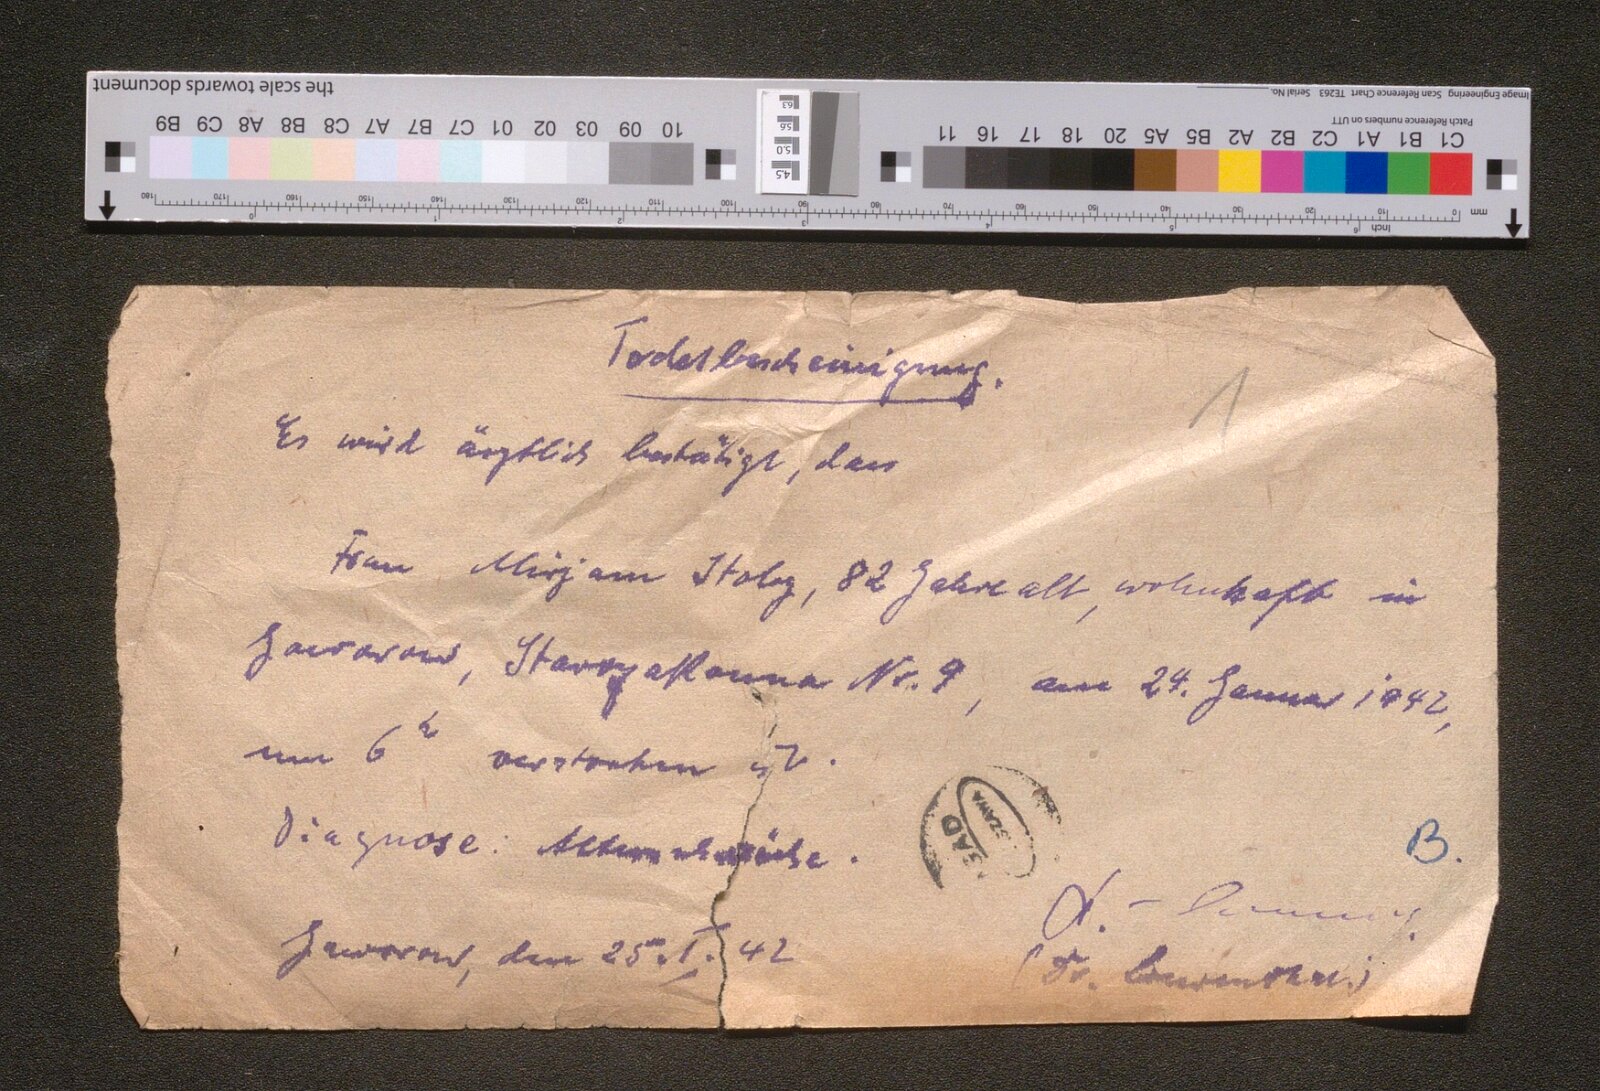 the scale towards document
Image Engineering Scan Reference Chart TE263 Serial No.
Patch Reference numbers on UTT
B9 C9 A8 B8 C8 A7 B7 C7 01 02 03 09 10
11 16 17 18 20 A5 B5 A2 B2 C2 A1 B1 C1
6.3
5.6
5.0
4.5
180 170 160 150 140 130 120 110 100 90 80 70 60 50 40 30 20 10 0 mm
0 1 2 3 4 5 6 Inch
Todesbescheinigung.
1
Es wird ärztlich bestätigt, dass
Frau Mirjam Stolz, 82 Jahre alt, wohnhaft in
Jaworow, Nr. 9, am 24. Januar 1942,
um 6h verstorben ist.
Diagnose: Altersschwäche.
B.
Jaworow, den 25. I. 42
(Dr.